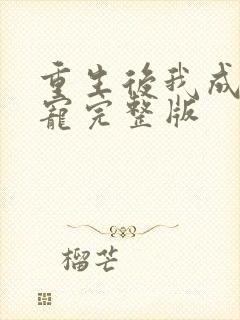 重生後我成
寵完整版
榴芒